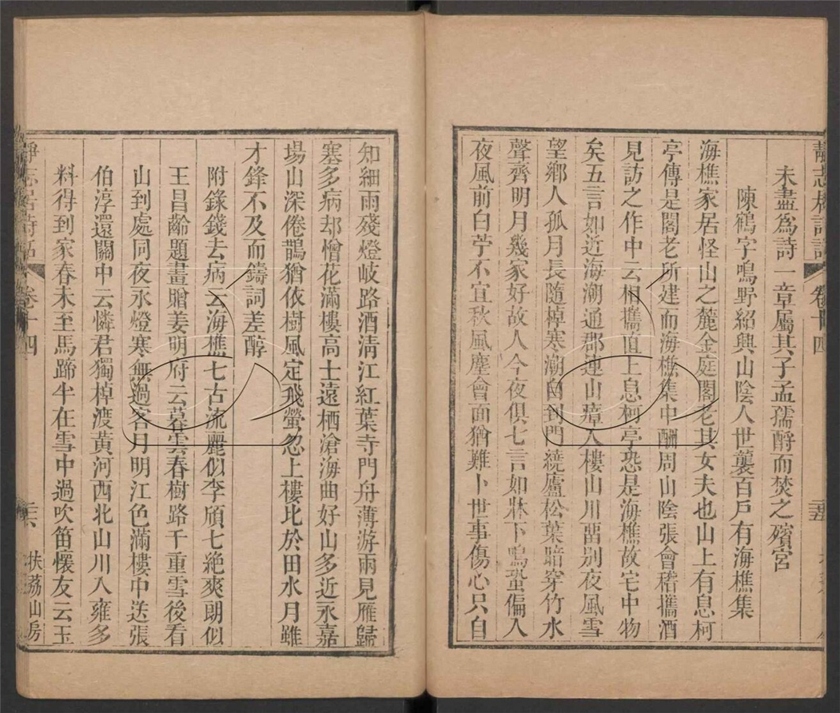 靜志居詩話 卷十四
未盡爲詩一章屬其子孟孺酹而焚之殯宮
陳鶴字鳴野紹興山陰人世襲百戶有海樵集
海樵家居怪山之麓金庭閣老其女夫也山上有息柯
亭傳是閣老所建而海樵集中酬周山陰張會稽攜酒
見訪之作中云相攜直上息柯亭恐是海樵故宅中物
矣五言如近海潮通郡連山瘴入樓山川留別夜風雪
望鄉人孤月長隨棹寒潮自到門繞廬松葉暗穿竹水
聲齊明月幾家好故人今夜俱七言如牀下鳴蛩偏入
夜風前白苧不宜秋風塵會面猶難卜世事傷心只自
知細雨殘燈岐路酒清江紅葉寺門舟薄游雨見雁歸
塞多病却憎花滿樓高士遠栖滄海曲好山多近永嘉
場山深倦鵲猶依樹風定飛螢忽上樓比於田水月雖
才鋒不及而鑄詞差醇
附錄錢去病云海樵七古流麗似李頎七絕爽朗似
王昌齡題畫贈姜明府云暮雲春樹路千重雪後看
山到處同夜永燈寒無過客月明江色滿樓中送張
伯淳還關中云憐君獨棹渡黃河西北山川入雍多
料得到家春未至馬蹄半在雪中過吹笛懷友云玉
靜志居詩話 卷十四
扶荔山房